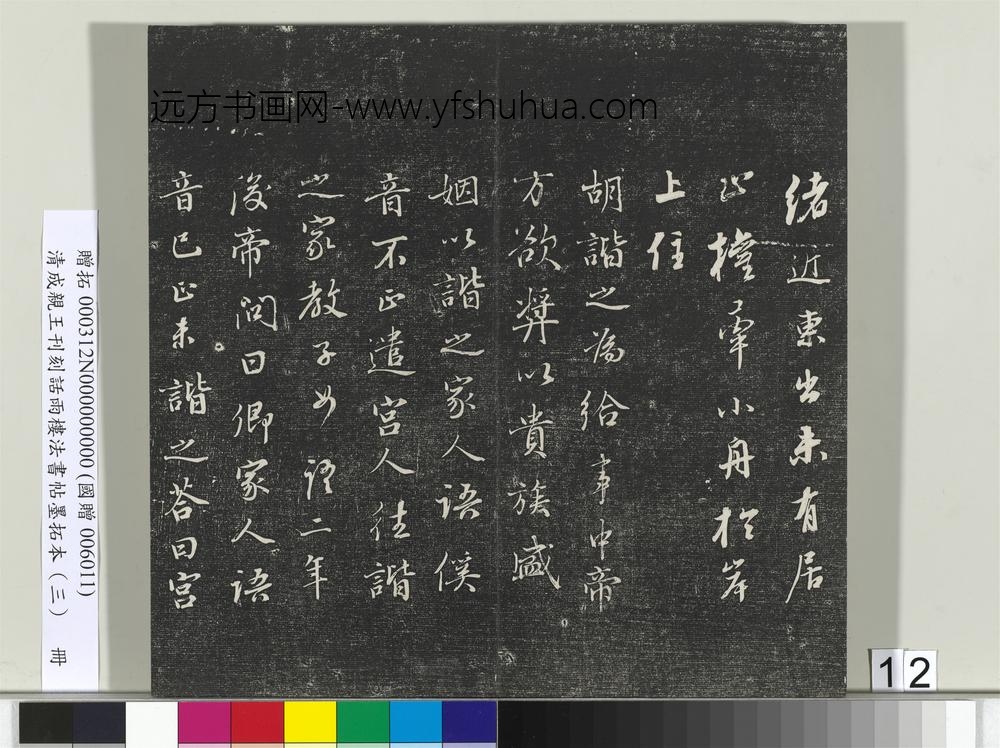 远方书画网-www.yfshuhua.com
緒近東出未有居
止權牽小舟於岸
上住
胡諧之為給事中帝
方欲奬以貴族盛
姻以諧之家人語傒
音不正遣宮人往諧
之家教子女語二年
後帝問曰卿家人語
音已正未諧之荅曰宮
贈拓 000312N000000000(國贈 006011)
清成親王刊刻詒晉樓法書帖墨拓本（三） 冊
12